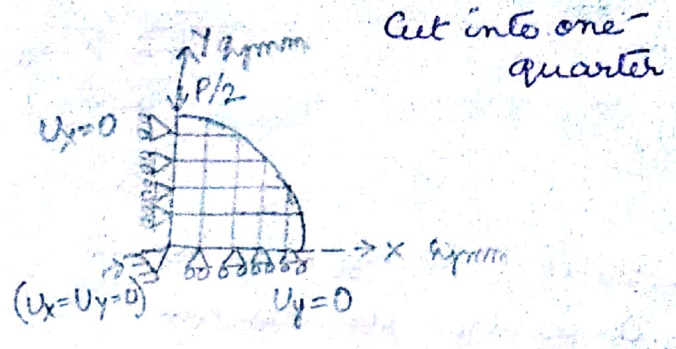 Cut into one-
quarter
Y Symm
P/2
Ux=0
X Symm
(Ux=Uy=0)
Uy=0